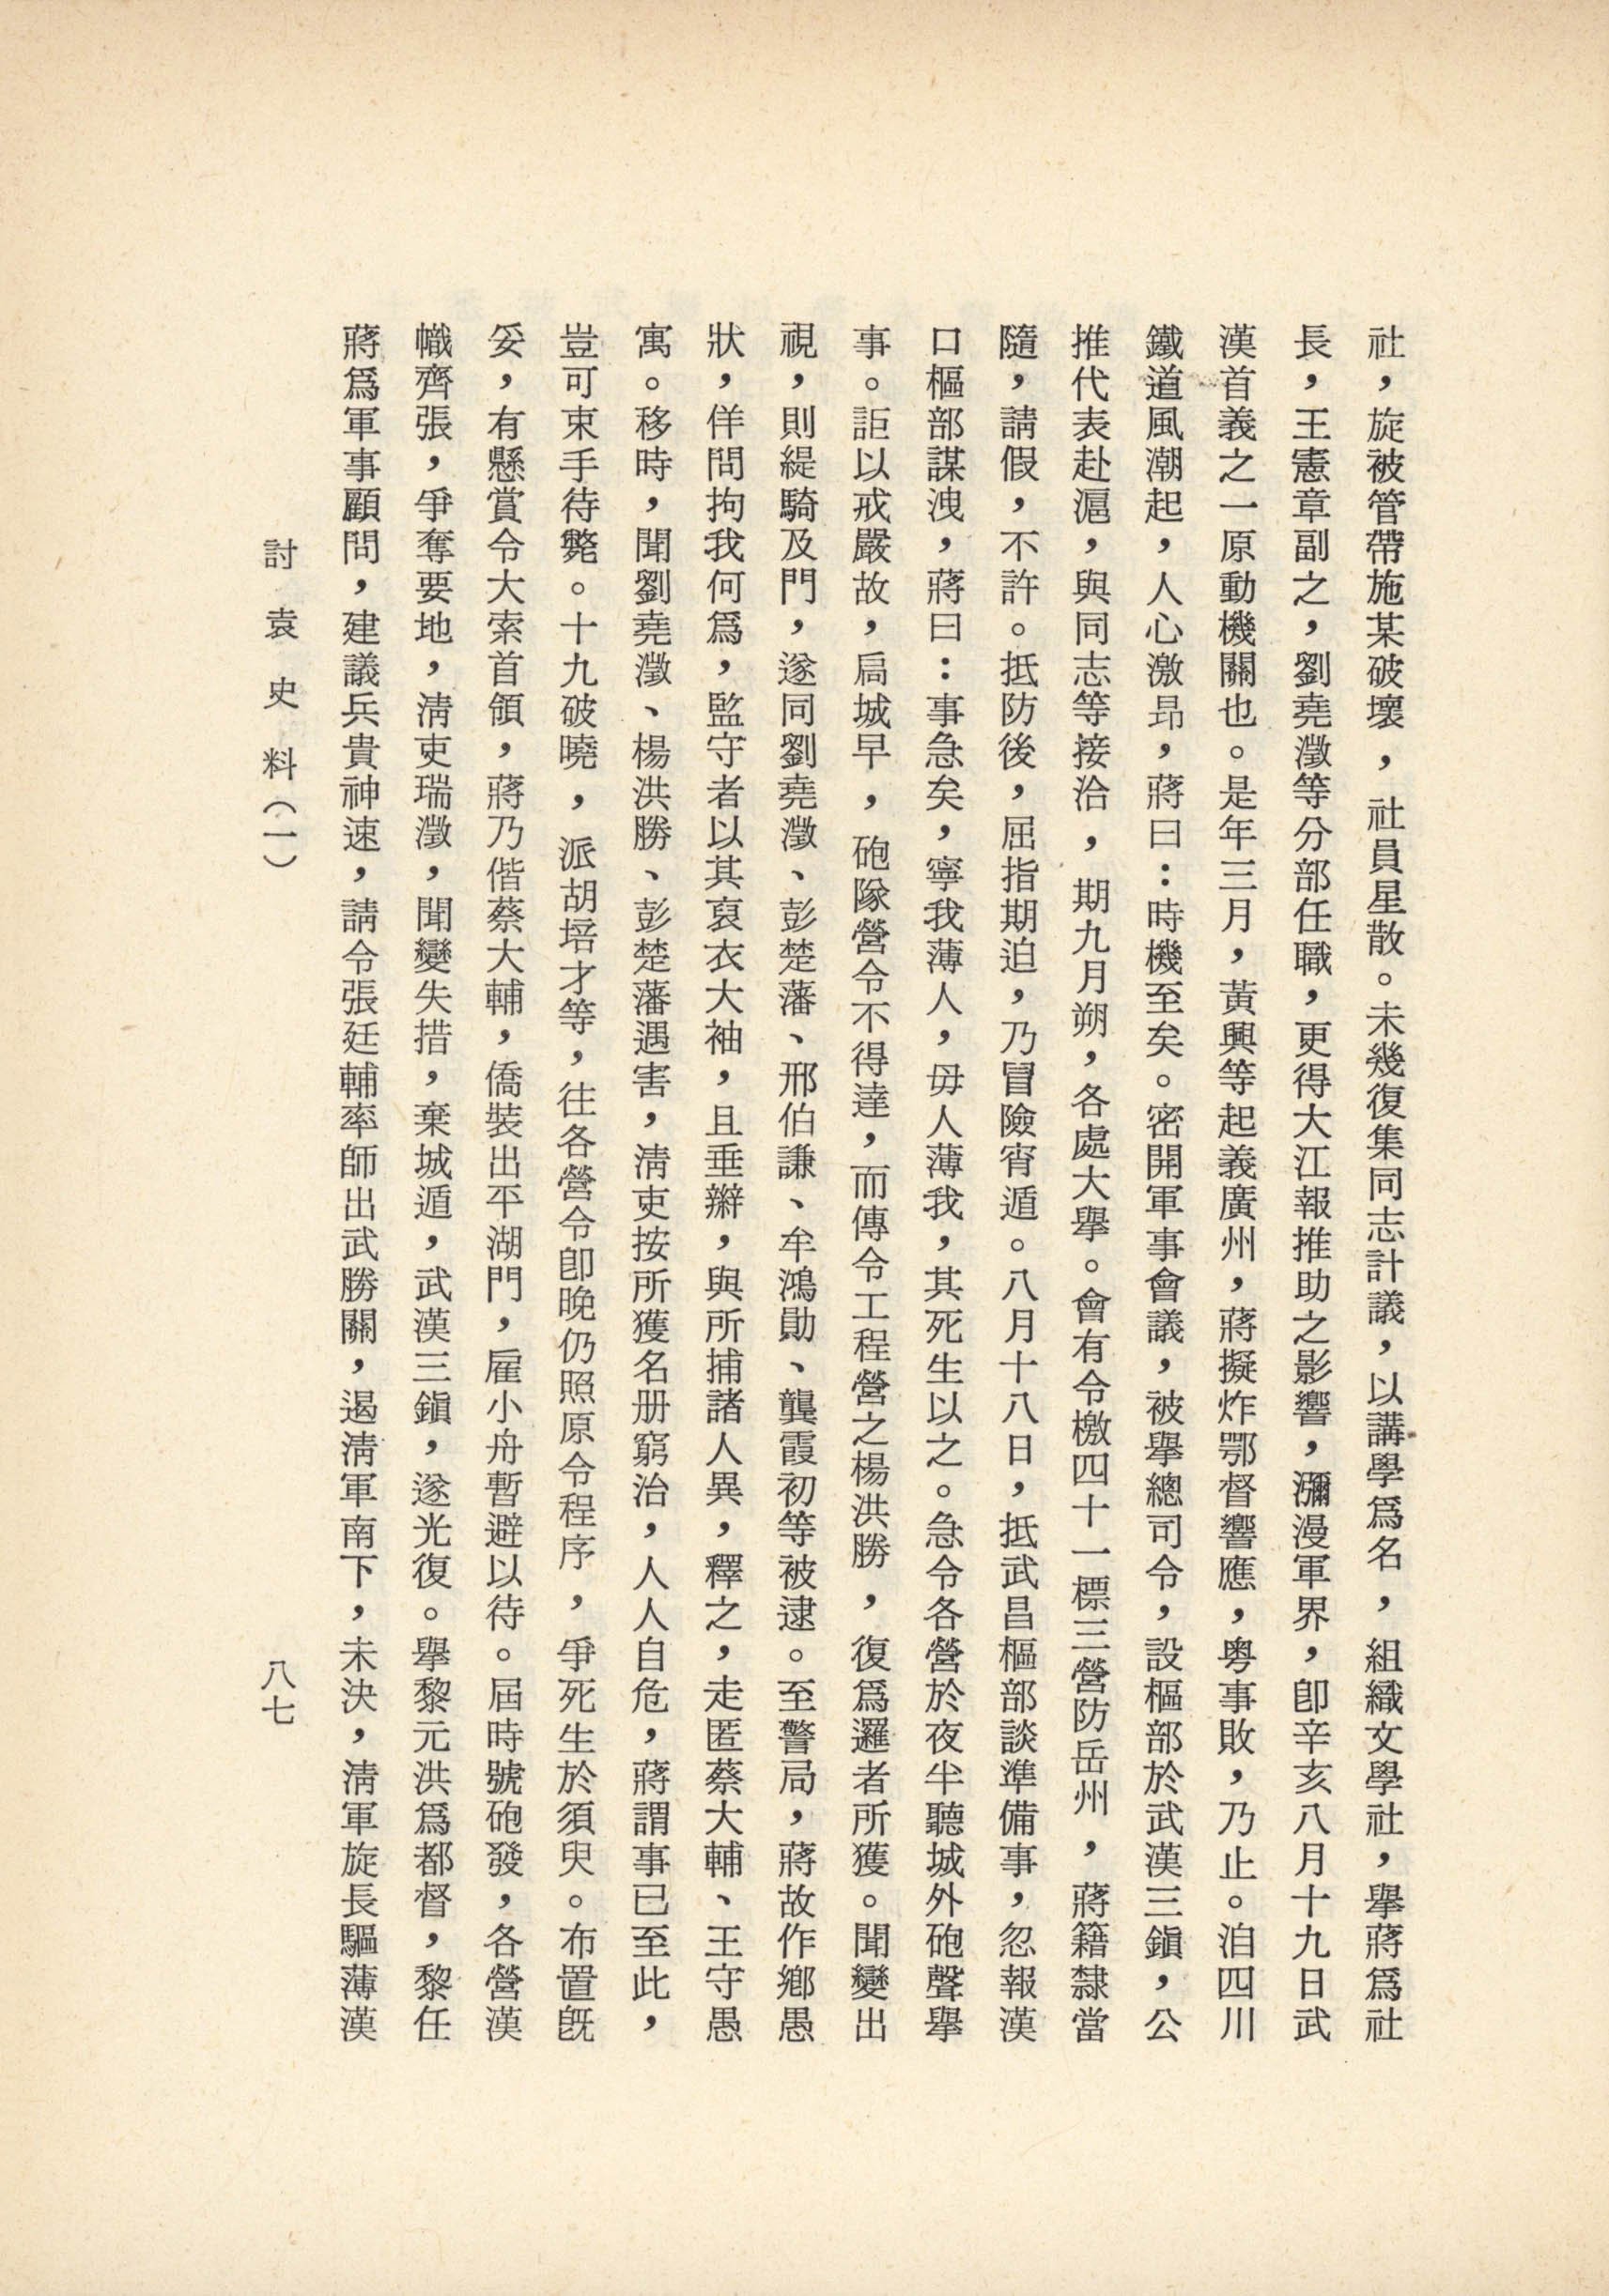 社，旋被管帶施某破壞，社員星散。未幾復集同志計議，以講學爲名，組織文學社，舉蔣爲社
長，王憲章副之，劉堯澂等分部任職，更得大江報推助之影響，瀰漫軍界，卽辛亥八月十九日武
漢首義之一原動機關也。是年三月，黃興等起義廣州，蔣擬炸鄂督響應，粵事敗，乃止。洎四川
鐵道風潮起，人心激昂，蔣曰：時機至矣。密開軍事會議，被舉總司令，設樞部於武漢三鎭，公
推代表赴滬，與同志等接洽，期九月朔，各處大舉。會有令檄四十一標三營防岳州，蔣籍隸當
隨，請假，不許。抵防後，屈指期迫，乃冒險宵遁。八月十八日，抵武昌樞部談準備事，忽報漢
口樞部謀洩，蔣曰：事急矣，寧我薄人，毋人薄我，其死生以之。急令各營於夜半聽城外砲聲舉
事。詎以戒嚴故，扃城早，砲隊營令不得達，而傳令工程營之楊洪勝，復爲邏者所獲。聞變出
視，則緹騎及門，遂同劉堯澂、彭楚藩、邢伯謙、牟鴻勛、龔霞初等被逮。至警局，蔣故作鄉愚
狀，佯問拘我何爲，監守者以其裒衣大袖，且垂辮，與所捕諸人異，釋之，走匿蔡大輔、王守愚
寓。移時，聞劉堯澂、楊洪勝、彭楚藩遇害，淸吏按所獲名册窮治，人人自危，蔣謂事已至此，
豈可束手待斃。十九破曉，派胡培才等，往各營令卽晚仍照原令程序，爭死生於須臾。布置旣
妥，有懸賞令大索首領，蔣乃偕蔡大輔，僑裝出平湖門，雇小舟暫避以待。屆時號砲發，各營漢
幟齊張，爭奪要地，淸吏瑞澂，聞變失措，棄城遁，武漢三鎭，遂光復。舉黎元洪爲都督，黎任
蔣爲軍事顧問，建議兵貴神速，請令張廷輔率師出武勝關，遏淸軍南下，未決，淸軍旋長驅薄漢
討袁史料（一）
八七